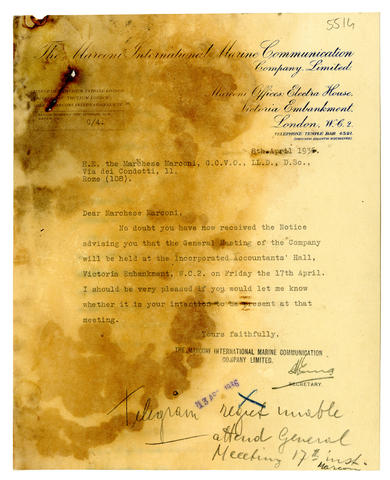 5514
The Marconi International Marine Communication
Company, Limited.
Marconi Offices, Electra House,
Victoria Embankment,
London, W.C.2.
TELEPHONE TEMPLE BAR 4321.
C/4.
8th April 1936.
H.E. the Marchese Marconi, G.C.V.O., LL.D., D.Sc.,
Via dei Condotti, 11.
Rome (108).
Dear Marchese Marconi,
No doubt you have now received the Notice
advising you that the General Meeting of the Company
will be held at the Incorporated Accountants' Hall,
Victoria Embankment, W.C.2. on Friday the 17th April.
I should be very pleased if you would let me know
whether it is your intention to be present at that
meeting.
Yours faithfully,
THE MARCONI INTERNATIONAL MARINE COMMUNICATION
COMPANY LIMITED.
SECRETARY.
13 APR 1936
Telegram regret unable
attend General
Meeting 17th inst.
Marconi